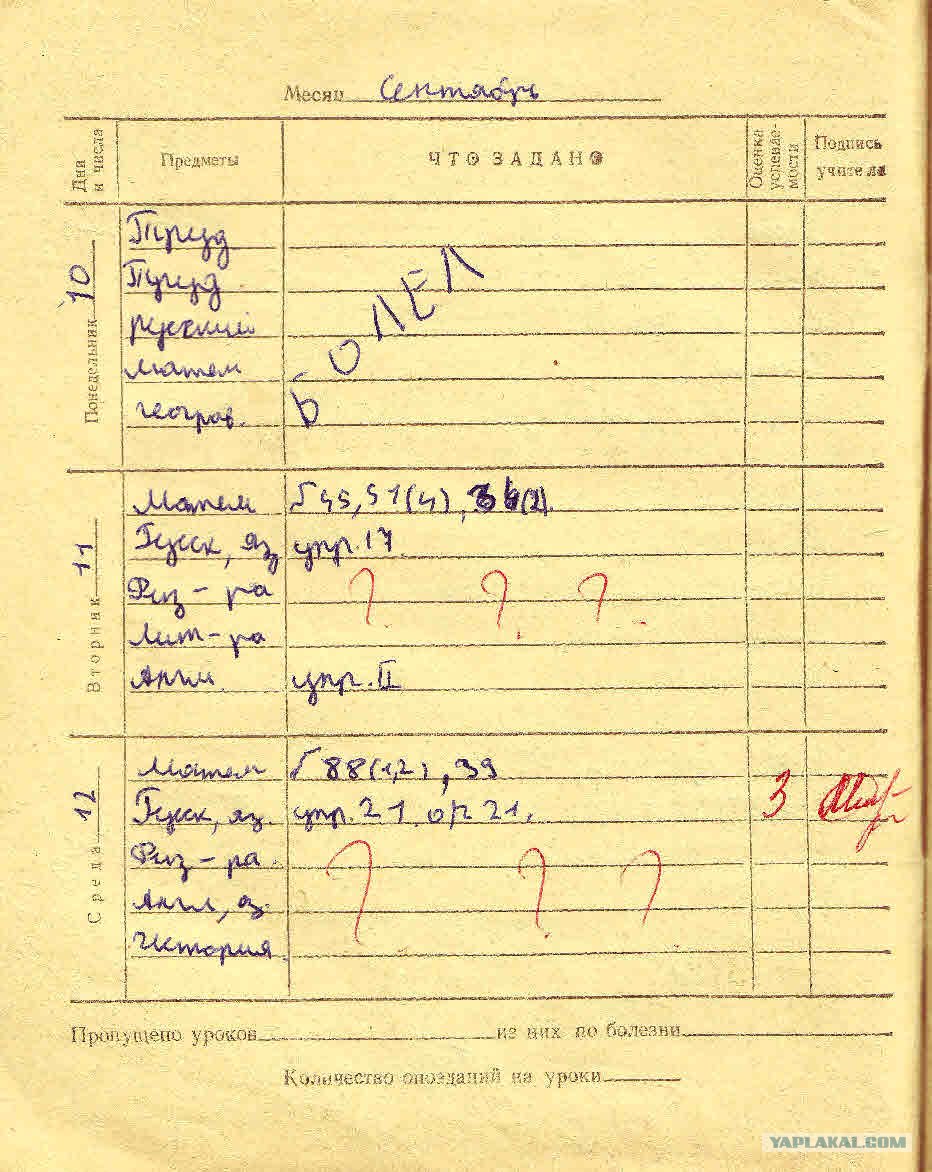 Месяц Сентябрь
Дни и числа Предметы ЧТО ЗАДАНО Оценка успевае-мости Подпись учителя
Понедельник 10
Труд
Труд
русский
матем
географ.
БОЛЕЛ
Вторник 11
Матем 45, 51(4),
Русск, яз упр. 17.
Физ-ра ? ? ?
Лит-ра
Англ упр. II
Среда 12
Матем 88(1,2), 39
Русск, яз. упр. 21 21. 3
Физ-ра ? ? ?
Англ, яз.
История
Пропущено уроков из них по болезни
Количество опозданий на уроки
YAPLAKAL.COM